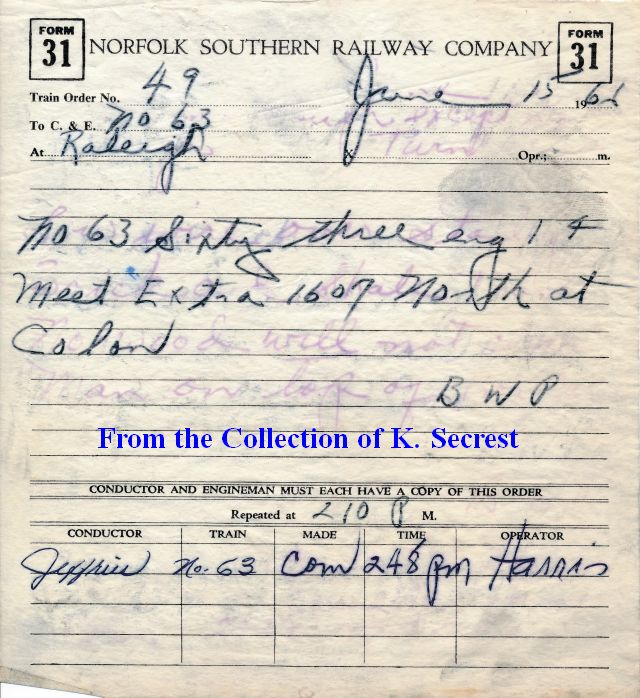 FORM 31 NORFOLK SOUTHERN RAILWAY COMPANY FORM 31
Train Order No. 49 June 15 1961
To C. & E. No 63
At Raleigh X Opr.; m.
No 63 Sixty three eng 1 4
Meet Extra 1607 North at
Colon
B W P
From the Collection of K. Secrest
CONDUCTOR AND ENGINEMAN MUST EACH HAVE A COPY OF THIS ORDER
Repeated at 210 P M.
CONDUCTOR TRAIN MADE TIME OPERATOR
Jeffries No. 63 Com 248 pm Harris